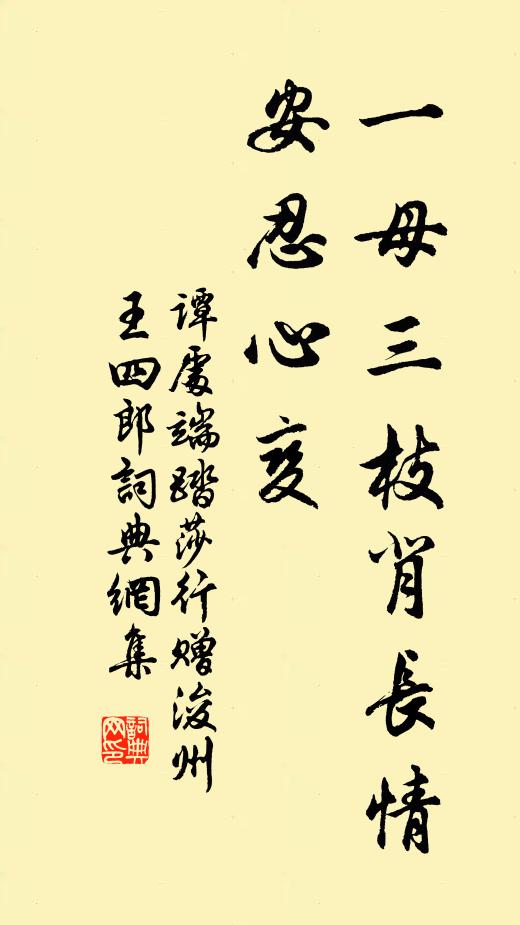 一母三枝肖長情
安忍心变
譚處端踏莎行贈浚州
王四郎詞典網集
詞典网印